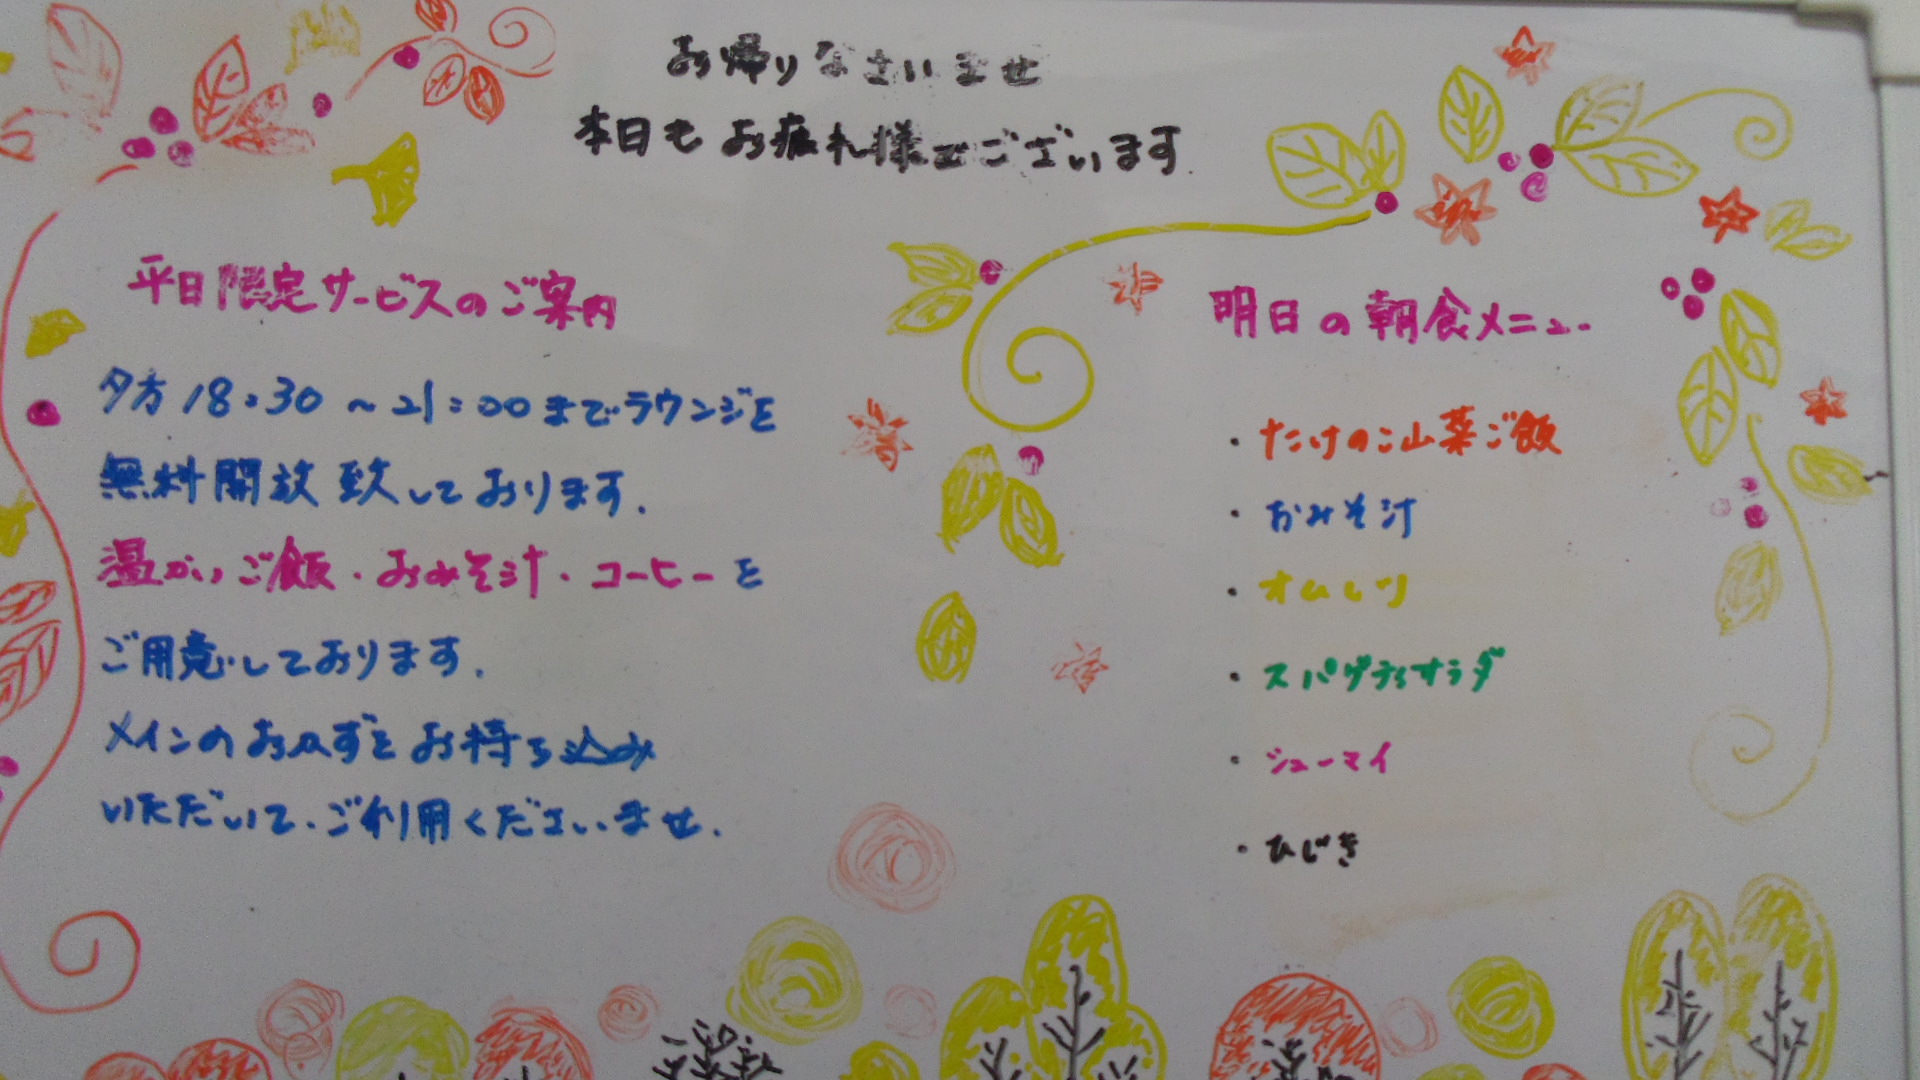 お帰りなさいませ
本日もお疲れ様でございます
平日限定サービスのご案内
夕方18:30~21:00までラウンジを
無料開放致しております。
温かいご飯・おみそ汁・コーヒーを
ご用意しております。
メインのおかずをお持ち込み
いただいて、ご利用くださいませ。
明日の朝食メニュー
・たけのこ山菜ご飯
・おみそ汁
・オムレツ
・スパゲティサラダ
・シューマイ
・ひじき